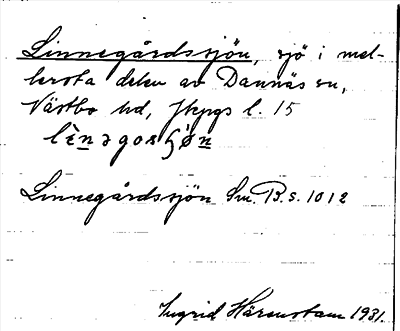 Linnegårdssjön, sjö i mel-
lersta delen av Dannäs sn,
Västbo hd, Jkpgs l. 15
Linnegårdssjön Sm. B. s. 1012
Ingrid Härenstam 1931.